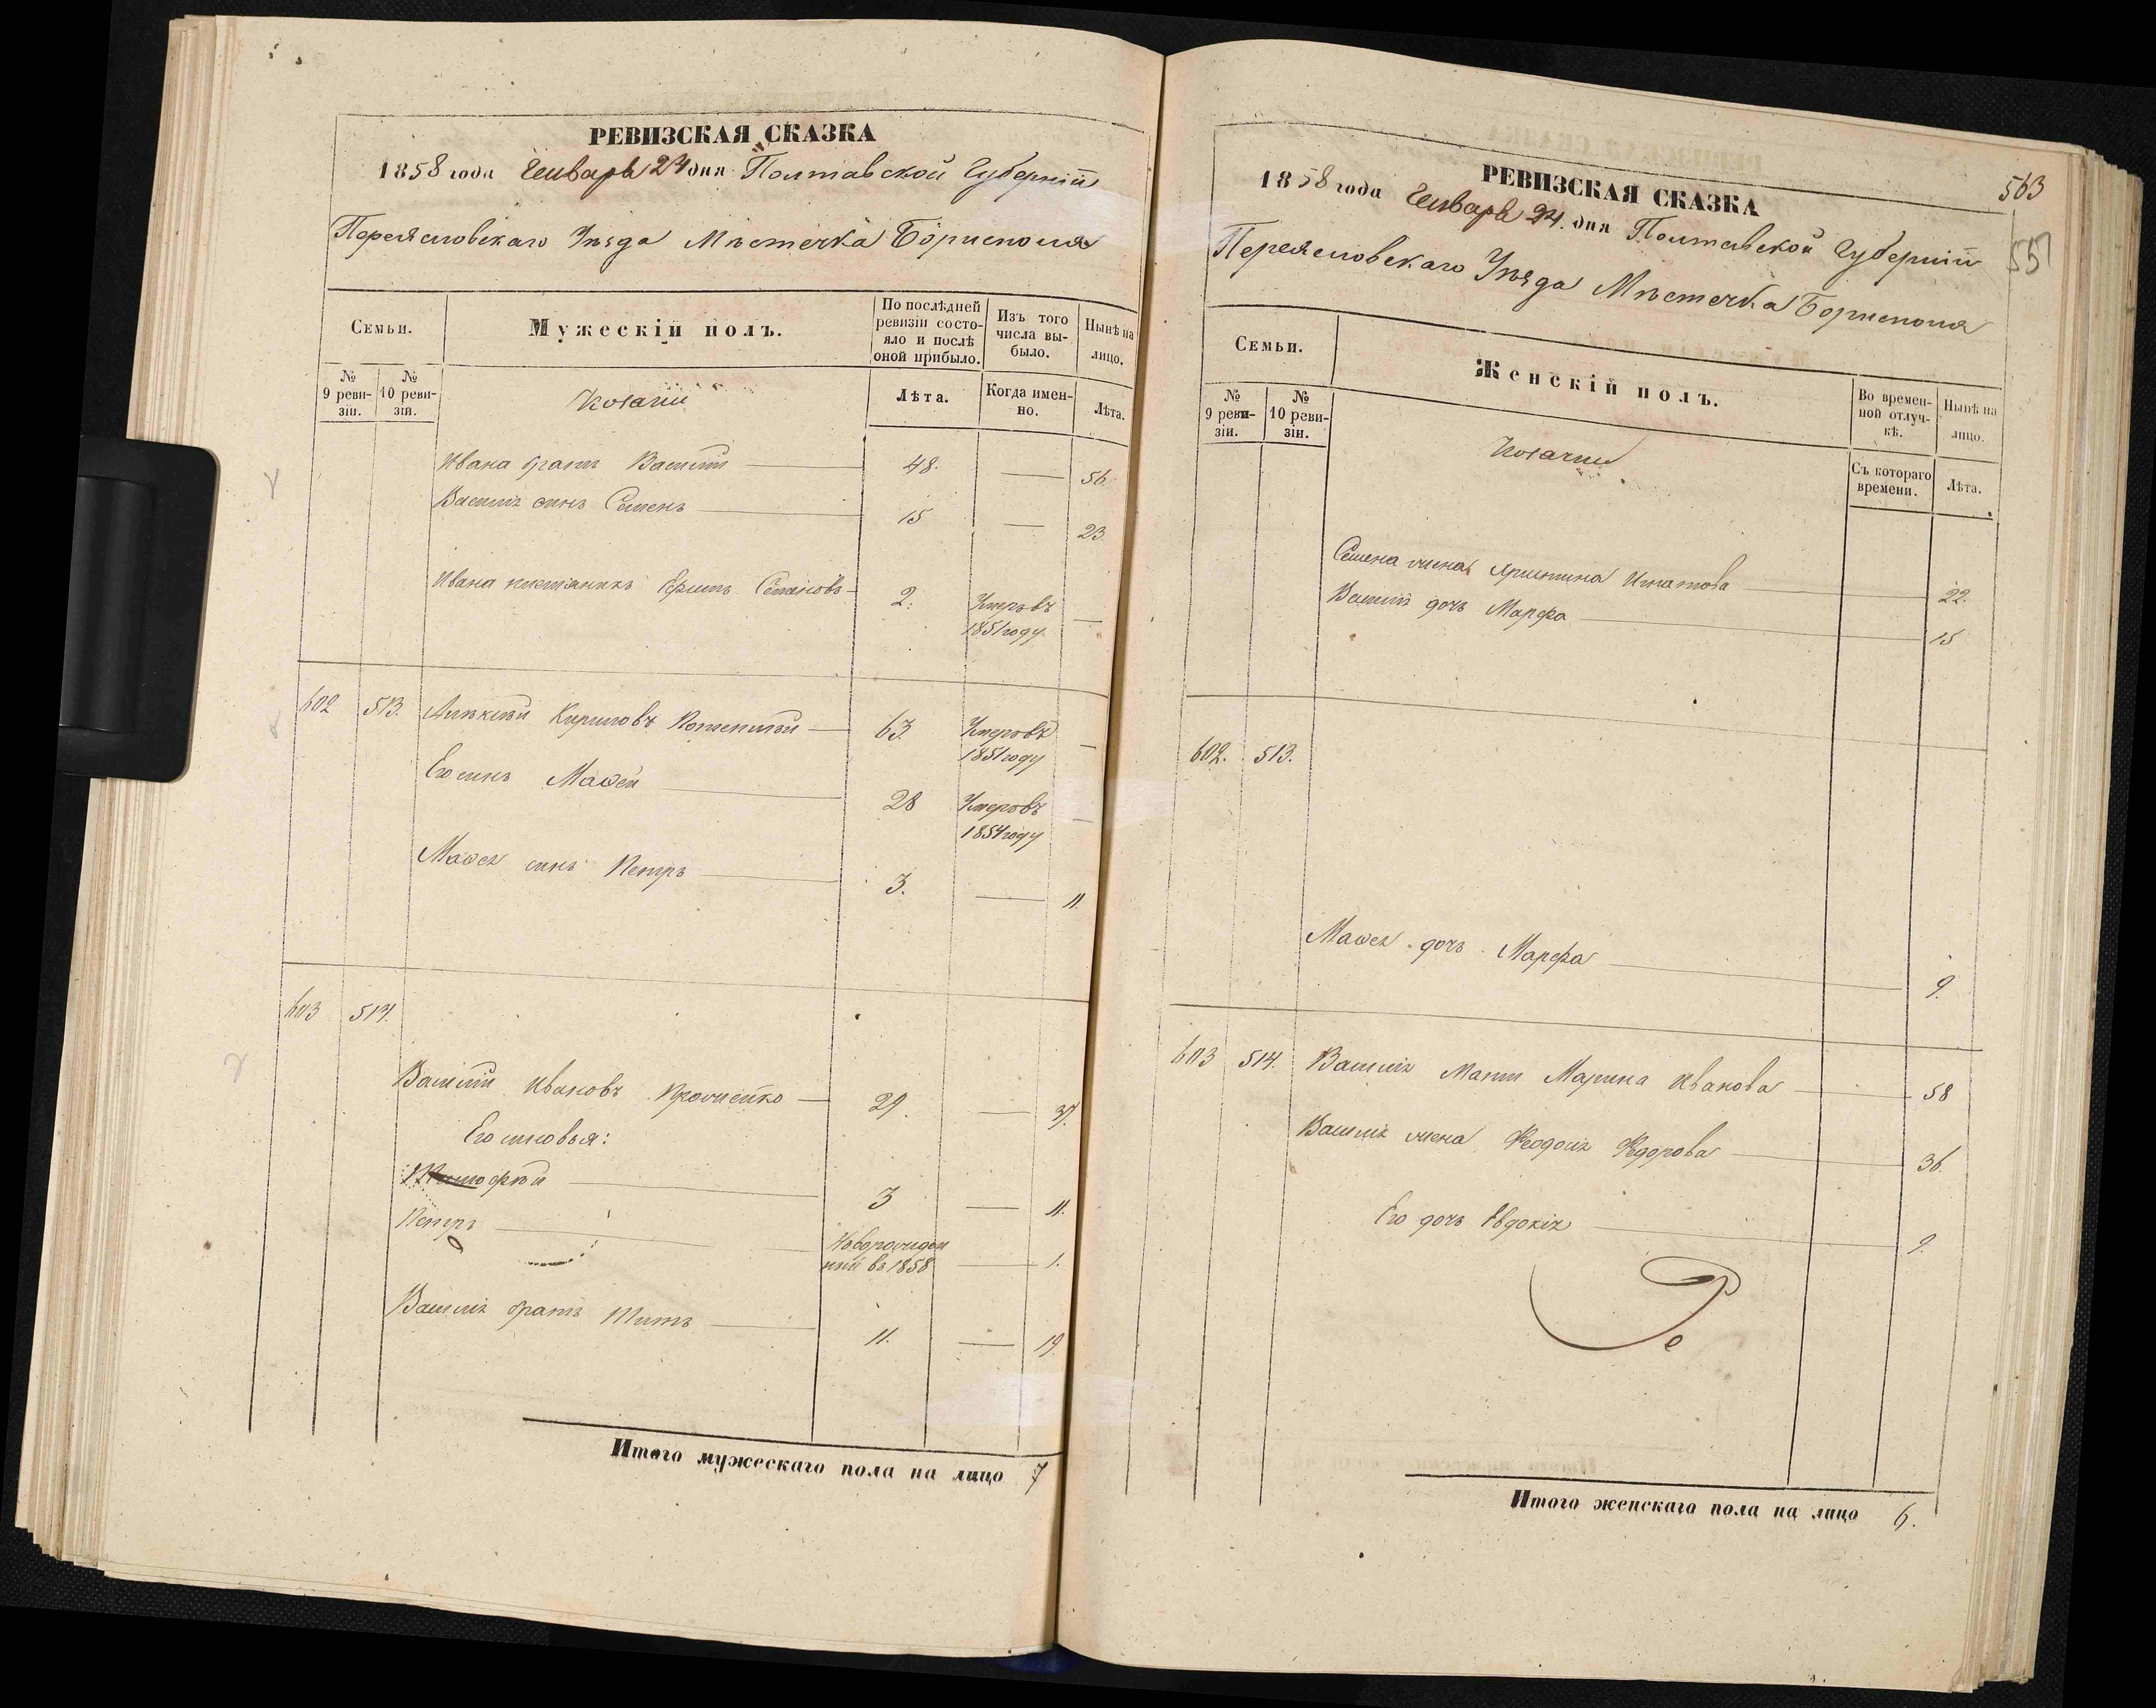 РЕВИЗСКАЯ СКАЗКА
1858 года Генваря 24 дня Полтавской Губерніи
Переясловскаго Уѣзда Мѣстечка Борисполя
Семьи.
Мужескій полъ.
По послѣдней ревизіи состояло и послѣ оной прибыло.
Изъ того числа выбыло.
Нынѣ на лицо.
№ 9 ревизіи.
№ 10 ревизіи.
Козаки
Лѣта.
Когда именно.
Лѣта.
Ивана братъ Василій 48. 56.
Василія сынъ Семенъ 15 23.
Ивана Семеновъ 2. Умеръ въ
1851 году
602 513. Алексѣй Кириловъ 63. Умеръ въ
1851 году
Его сынъ Моѳей 28 Умеръ въ
1854 году
Моѳея сынъ Петръ 3. 11.
603 514.
Василій Ивановъ 29. 37.
Его сыновья:
Тимофѣй 3 11.
Петръ Новорожден
ный въ 1858 1.
Василія братъ Титъ 11. 19.
Итого мужескаго пола на лицо 7
563
557
РЕВИЗСКАЯ СКАЗКА
1858 года Генваря 24. дня Полтавской Губерніи
Переясловскаго Уѣзда Мѣстечка Борисполя
Семьи.
Женскій полъ.
Во временной отлучкѣ.
Нынѣ на лицо.
№ 9 ревизіи.
№ 10 ревизіи.
Козачки
Съ котораго времени.
Лѣта.
Семена жена Христина Игнатова 22.
Василія дочь Марфа 15
602. 513.
Моѳея дочь Марфа 9.
603 514. Василія Мать Марина Иванова 58
Василія жена Феодосія Федорова 36.
Его дочь Евдокія 9.
Итого женскаго пола на лицо 6.